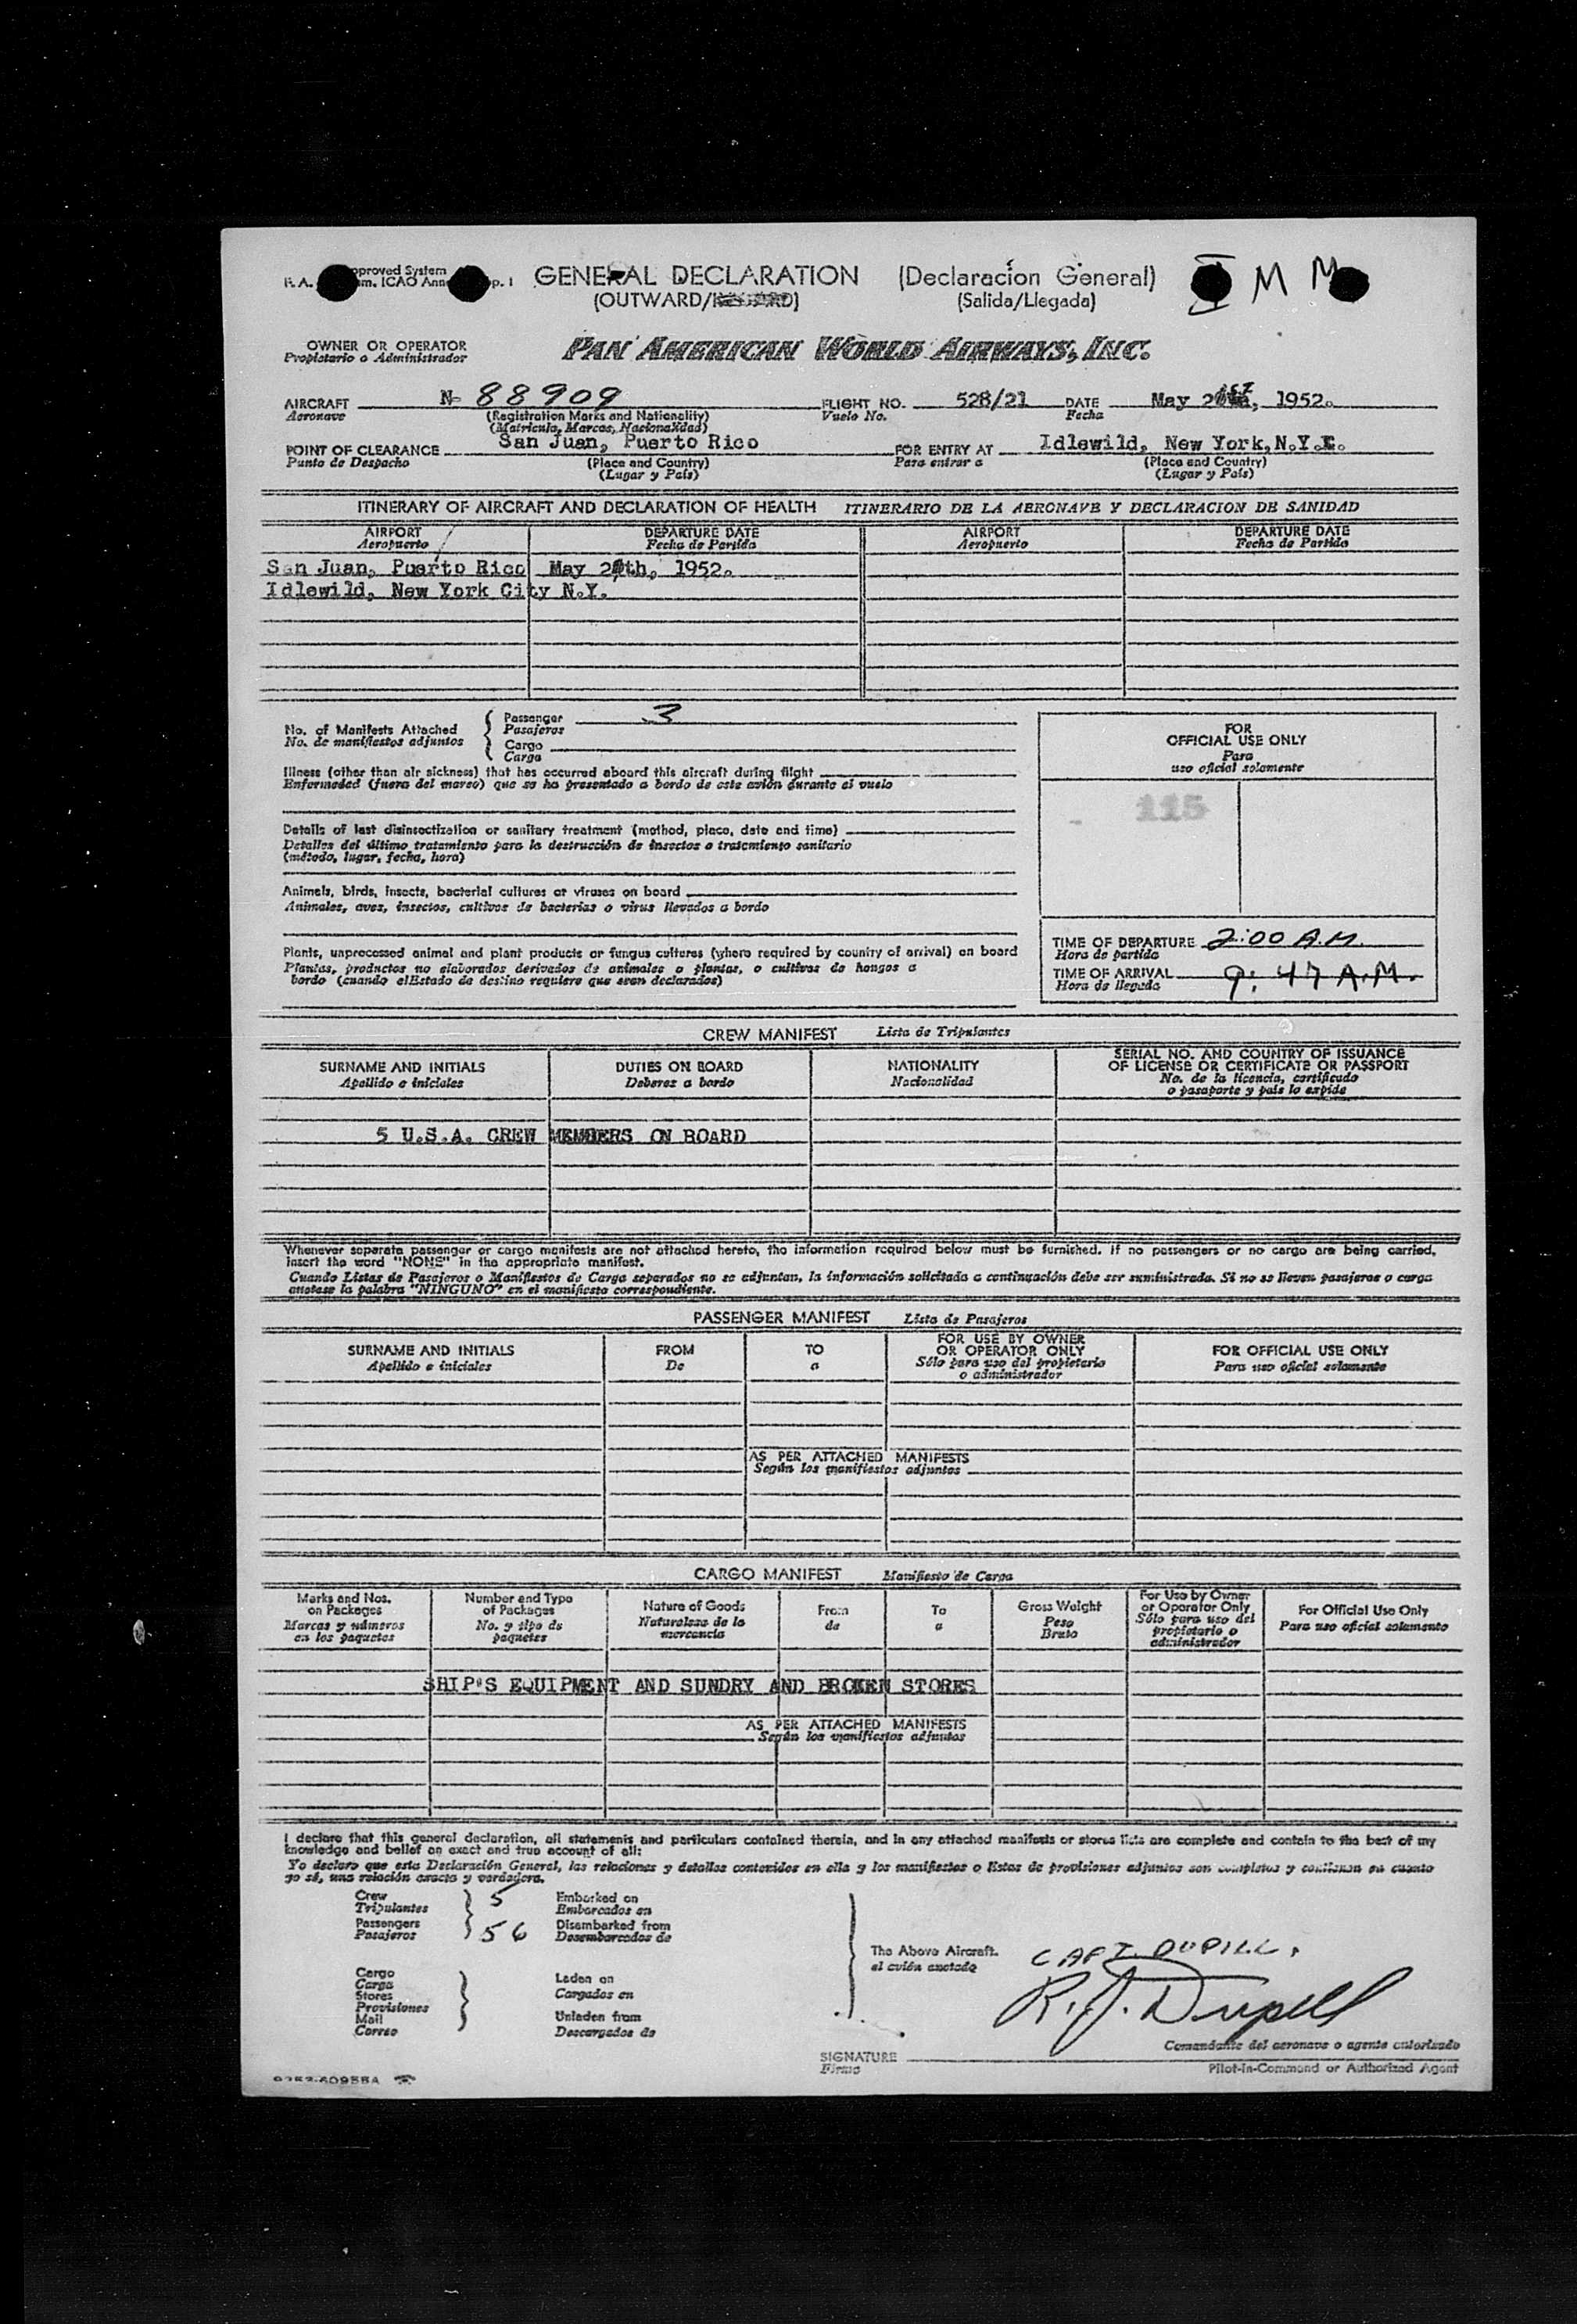 GENERAL DECLARATION (Declaración General)
(OUTWARD/ (Salida/Llegada)
I M M
OWNER OR OPERATOR
Propietario o Administrador
PAN AMERICAN WORLD AIRWAYS, INC.
AIRCRAFT N- 88909 FLIGHT NO. 528/21 DATE May 21st, 1952.
Aeronave (Registration Marks and Nationality) Vuelo No. Fecha
(Matricula, Marcas, Nacionalidad)
POINT OF CLEARANCE San Juan, Puerto Rico FOR ENTRY AT Idlewild, New York, N.Y.
Punto de Despacho (Place and Country) Para entrar a (Place and Country)
(Lugar y País) (Lugar y País)
ITINERARY OF AIRCRAFT AND DECLARATION OF HEALTH ITINERARIO DE LA AERONAVE Y DECLARACION DE SANIDAD
AIRPORT DEPARTURE DATE AIRPORT DEPARTURE DATE
Aeropuerto Fecha de Partida Aeropuerto Fecha de Partida
San Juan, Puerto Rico May , 1952.
Idlewild, New York City N.Y.
No. of Manifests Attached
No. de manifiestos adjuntos
Passenger 3
Pasajeros
Cargo
Carga
FOR
OFFICIAL USE ONLY
Para
uso oficial solamente
115
Illness (other than air sickness) that has occurred aboard this aircraft during flight
Enfermedad (fuera del mareo) que se ha presentado a bordo de este avión durante el vuelo
Details of last disinsectization or sanitary treatment (method, place, date and time)
Detalles del último tratamiento para la destrucción de insectos o tratamiento sanitario
(método, lugar, fecha, hora)
Animals, birds, insects, bacterial cultures or viruses on board
Animales, aves, insectos, cultivos de bacterias o virus llevados a bordo
Plants, unprocessed animal and plant products or fungus cultures (where required by country of arrival) on board
Plantas, productos no elaborados derivados de animales o plantas, o cultivos de hongos a
bordo (cuando el Estado de destino requiere que sean declarados)
TIME OF DEPARTURE 2:00 A.M.
Hora de partida
TIME OF ARRIVAL 9:47 A.M.
Hora de llegada
CREW MANIFEST Lista de Tripulantes
SURNAME AND INITIALS DUTIES ON BOARD NATIONALITY SERIAL NO. AND COUNTRY OF ISSUANCE
OF LICENSE OR CERTIFICATE OR PASSPORT
Apellido e iniciales Deberes a bordo Nacionalidad No. de la licencia, certificado
o pasaporte y país lo expide
5 U.S.A. CREW MEMBERS ON BOARD
Whenever separate passenger or cargo manifests are not attached hereto, the information required below must be furnished. If no passengers or no cargo are being carried,
insert the word "NONE" in the appropriate manifest.
Cuando Listas de Pasajeros o Manifiestos de Carga separados no se adjuntan, la información solicitada a continuación debe ser suministrada. Si no se lleven pasajeros o carga
anotese la palabra "NINGUNO" en el manifiesto correspondiente.
PASSENGER MANIFEST Lista de Pasajeros
SURNAME AND INITIALS FROM TO FOR USE BY OWNER
OR OPERATOR ONLY FOR OFFICIAL USE ONLY
Apellido e iniciales De a Sólo para uso del propietario
o administrador Para uso oficial solamente
AS PER ATTACHED MANIFESTS
Según los manifiestos adjuntos
CARGO MANIFEST Manifiesto de Carga
Marks and Nos.
on Packages
Marcas y números
en los paquetes
Number and Type
of Packages
No. y tipo de
paquetes
Nature of Goods
Naturaleza de la
mercancía
From
de
To
a
Gross Weight
Peso
Bruto
For Use by Owner
or Operator Only
Sólo para uso del
propietario o
administrador
For Official Use Only
Para uso oficial solamente
SHIP'S EQUIPMENT AND SUNDRY AND BROKEN STORES
AS PER ATTACHED MANIFESTS
Según los manifiestos adjuntos
I declare that this general declaration, all statements and particulars contained therein, and in any attached manifests or stores lists are complete and contain to the best of my
knowledge and belief an exact and true account of all:
Yo declaro que esta Declaración General, las relaciones y detalles contenidos en ella y los manifiestos o listas de provisiones adjuntos son completos y contienen en cuanto
yo sé, una relación exacta y verdadera.
Crew 5 Embarked on
Tripulantes Embarcados en
Passengers 56 Disembarked from
Pasajeros Desembarcados de
The Above Aircraft.
el avión anotado
CAPT DUPILL.
R. J. Dupill
Cargo
Carga
Stores
Provisiones
Mail
Correo
Laden on
Cargados en
Unladen from
Descargados de
SIGNATURE
Firma
Comandante del aeronave o agente autorizado
Pilot-in-Command or Authorized Agent